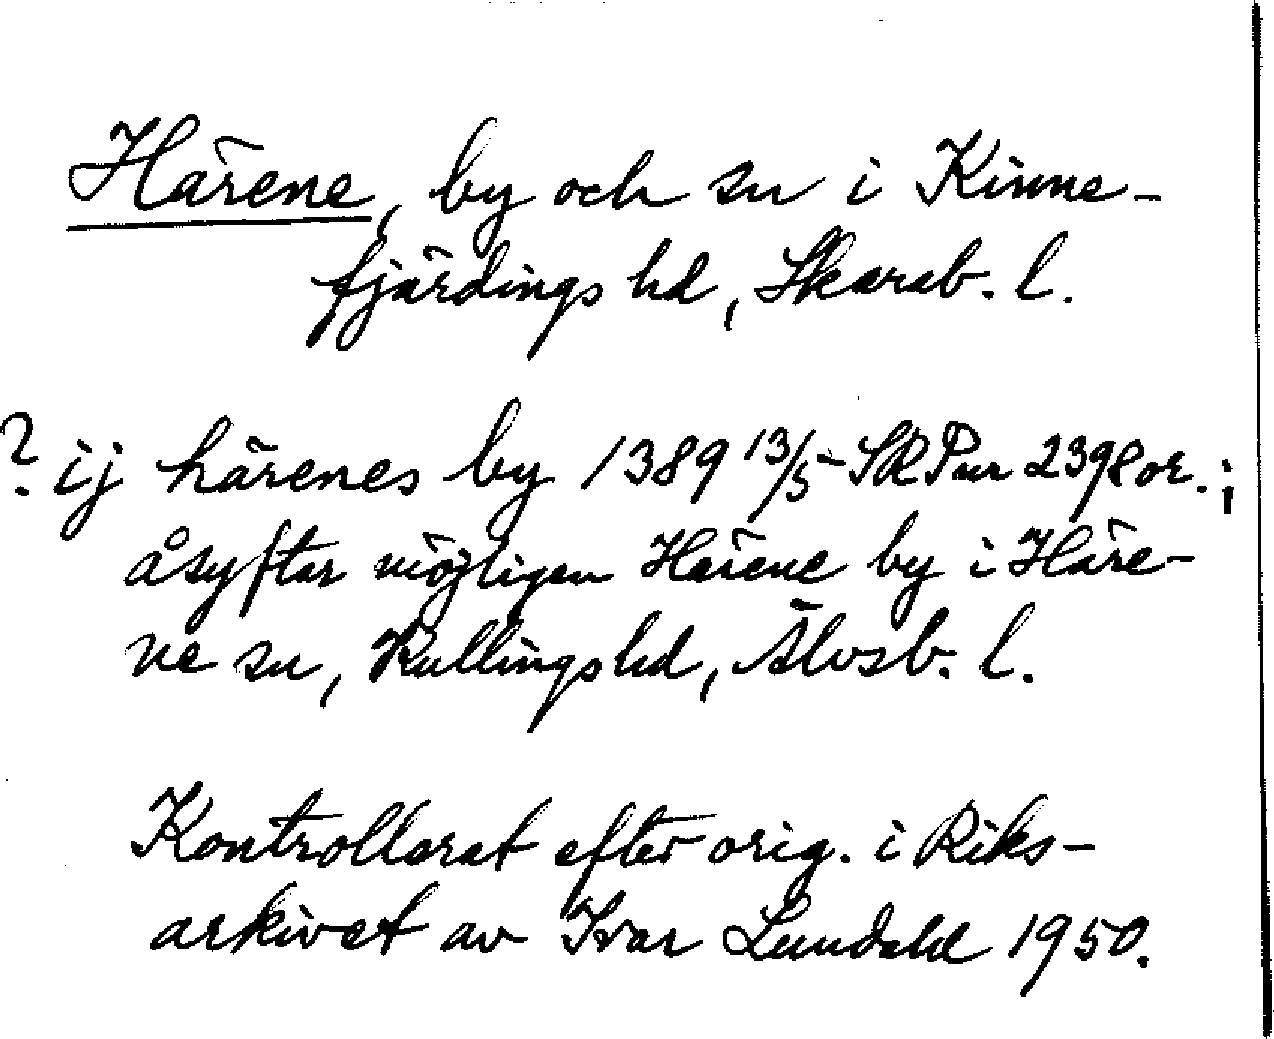 Härene, by och sn i Kinne-
fjärdings hd, Skarab. l.
? ij härenes by 1389 13/5 SRPun 2398 or.;
åsyftar möjligen Härene by i Häre-
ne sn, Kullings hd, Älvsb. l.
Kontrollerat efter orig. i Riks-
arkivet av Ivar Lundahl 1950.